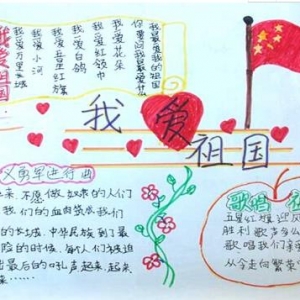 我爱祖国
我爱万里长城
我爱小河
我爱五星红旗
我爱白鸽
我爱红领巾
我爱花朵
你要问我最爱什么
我最爱我的祖国
我爱祖国
义勇军进行曲
来,不愿做奴隶的人们
我们的血肉筑成我们
的长城,中华民族到了最
险的时候,每个人们被迫
出最后的吼声起来,起来
歌唱
五星红旗迎风
胜利歌声多么
歌唱我们亲
从今走向繁荣